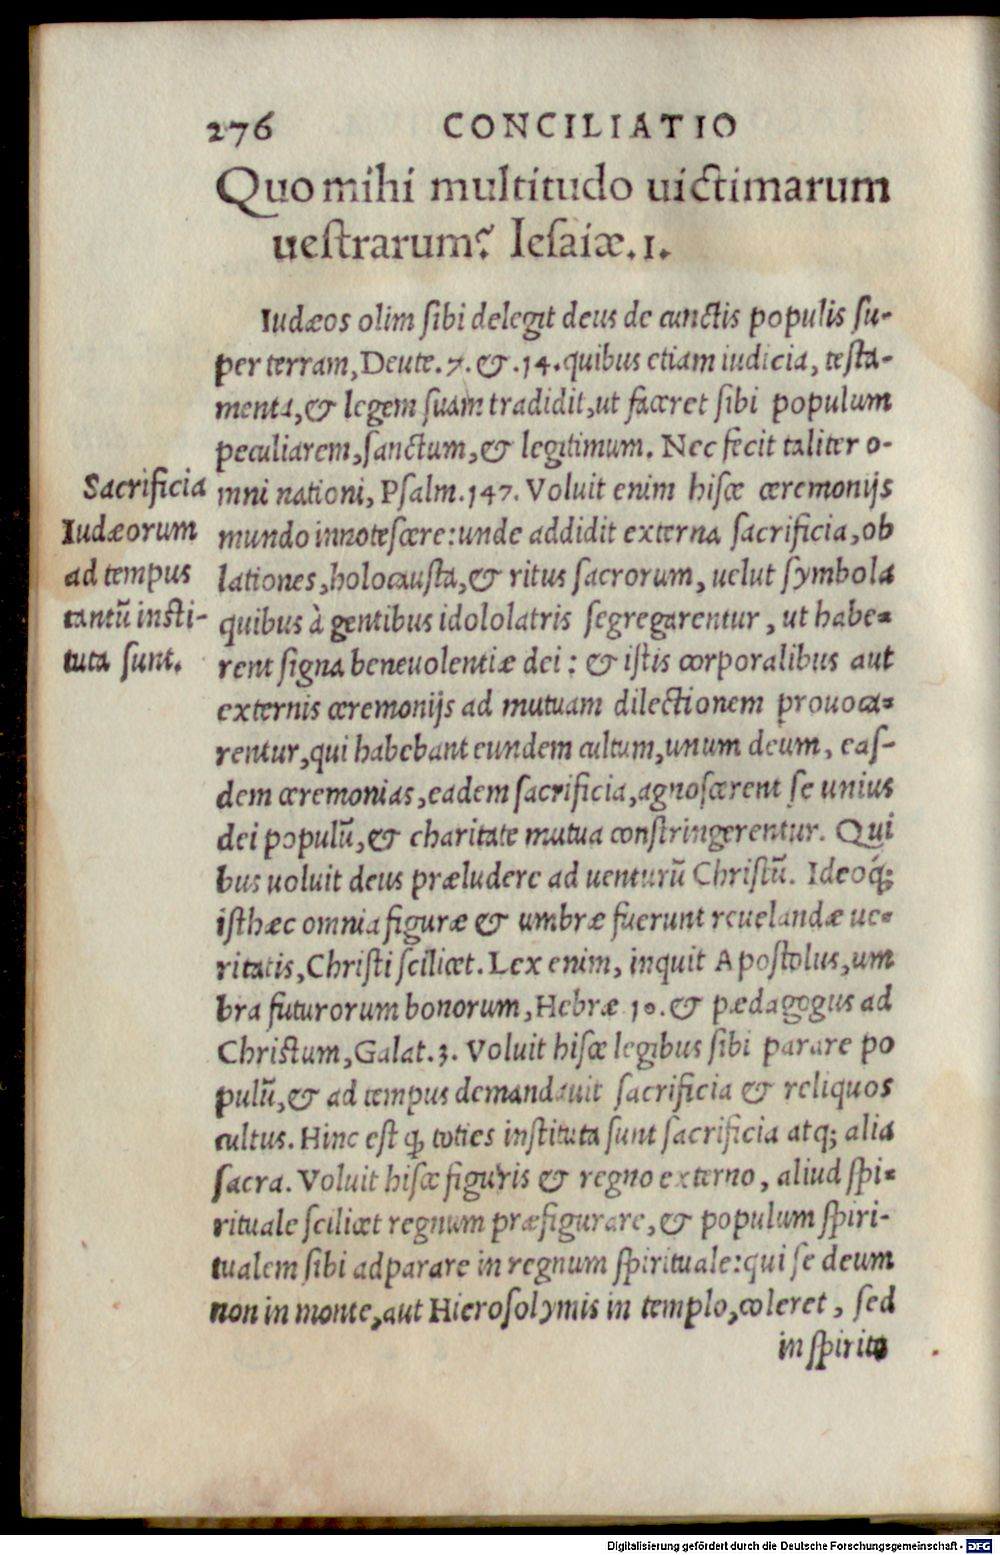 276 CONCILIATIO
Quo mihi multitudo uictimarum
uestrarum? Iesaiæ. 1.
Iudæos olim sibi delegit deus de cunctis populis su-
per terram, Deute. 7. & .14. quibus etiam iudicia, testa-
menta, & legem suam tradidit, ut faceret sibi populum
peculiarem, sanctum, & legitimum. Nec fecit taliter o-
mni nationi, Psalm. 147. Voluit enim hisce ceremonijs
mundo innotescere: unde addidit externa sacrificia, ob
lationes, holocausta, & ritus sacrorum, uelut symbola
quibus à gentibus idololatris segregarentur, ut habe-
rent signa beneuolentiæ dei: & istis corporalibus aut
externis ceremonijs ad mutuam dilectionem prouoca-
rentur, qui habebant eundem cultum, unum deum, eas-
dem ceremonias, eadem sacrificia, agnoscerent se unius
dei populũ, & charitate mutua constringerentur. Qui
bus uoluit deus præludere ad uenturũ Christũ. Ideoq́;
isthæc omnia figuræ & umbræ fuerunt reuelandæ ue-
ritatis, Christi scilicet. Lex enim, inquit Apostolus, um
bra futurorum bonorum, Hebræ 10. & pædagogus ad
Christum, Galat. 3. Voluit hisce legibus sibi parare po
pulũ, & ad tempus demandauit sacrificia & reliquos
cultus. Hinc est ꝙ toties instituta sunt sacrificia atq; alia
sacra. Voluit hisce figuris & regno externo, aliud spi-
rituale scilicet regnum præfigurare, & populum spiri-
tualem sibi adparare in regnum spirituale: qui se deum
non in monte, aut Hierosolymis in templo, coleret, sed
in spirito
Sacrificia
Iudæorum
ad tempus
tantũ insti-
tuta sunt.
Digitalisierung gefördert durch die Deutsche Forschungsgemeinschaft - DFG